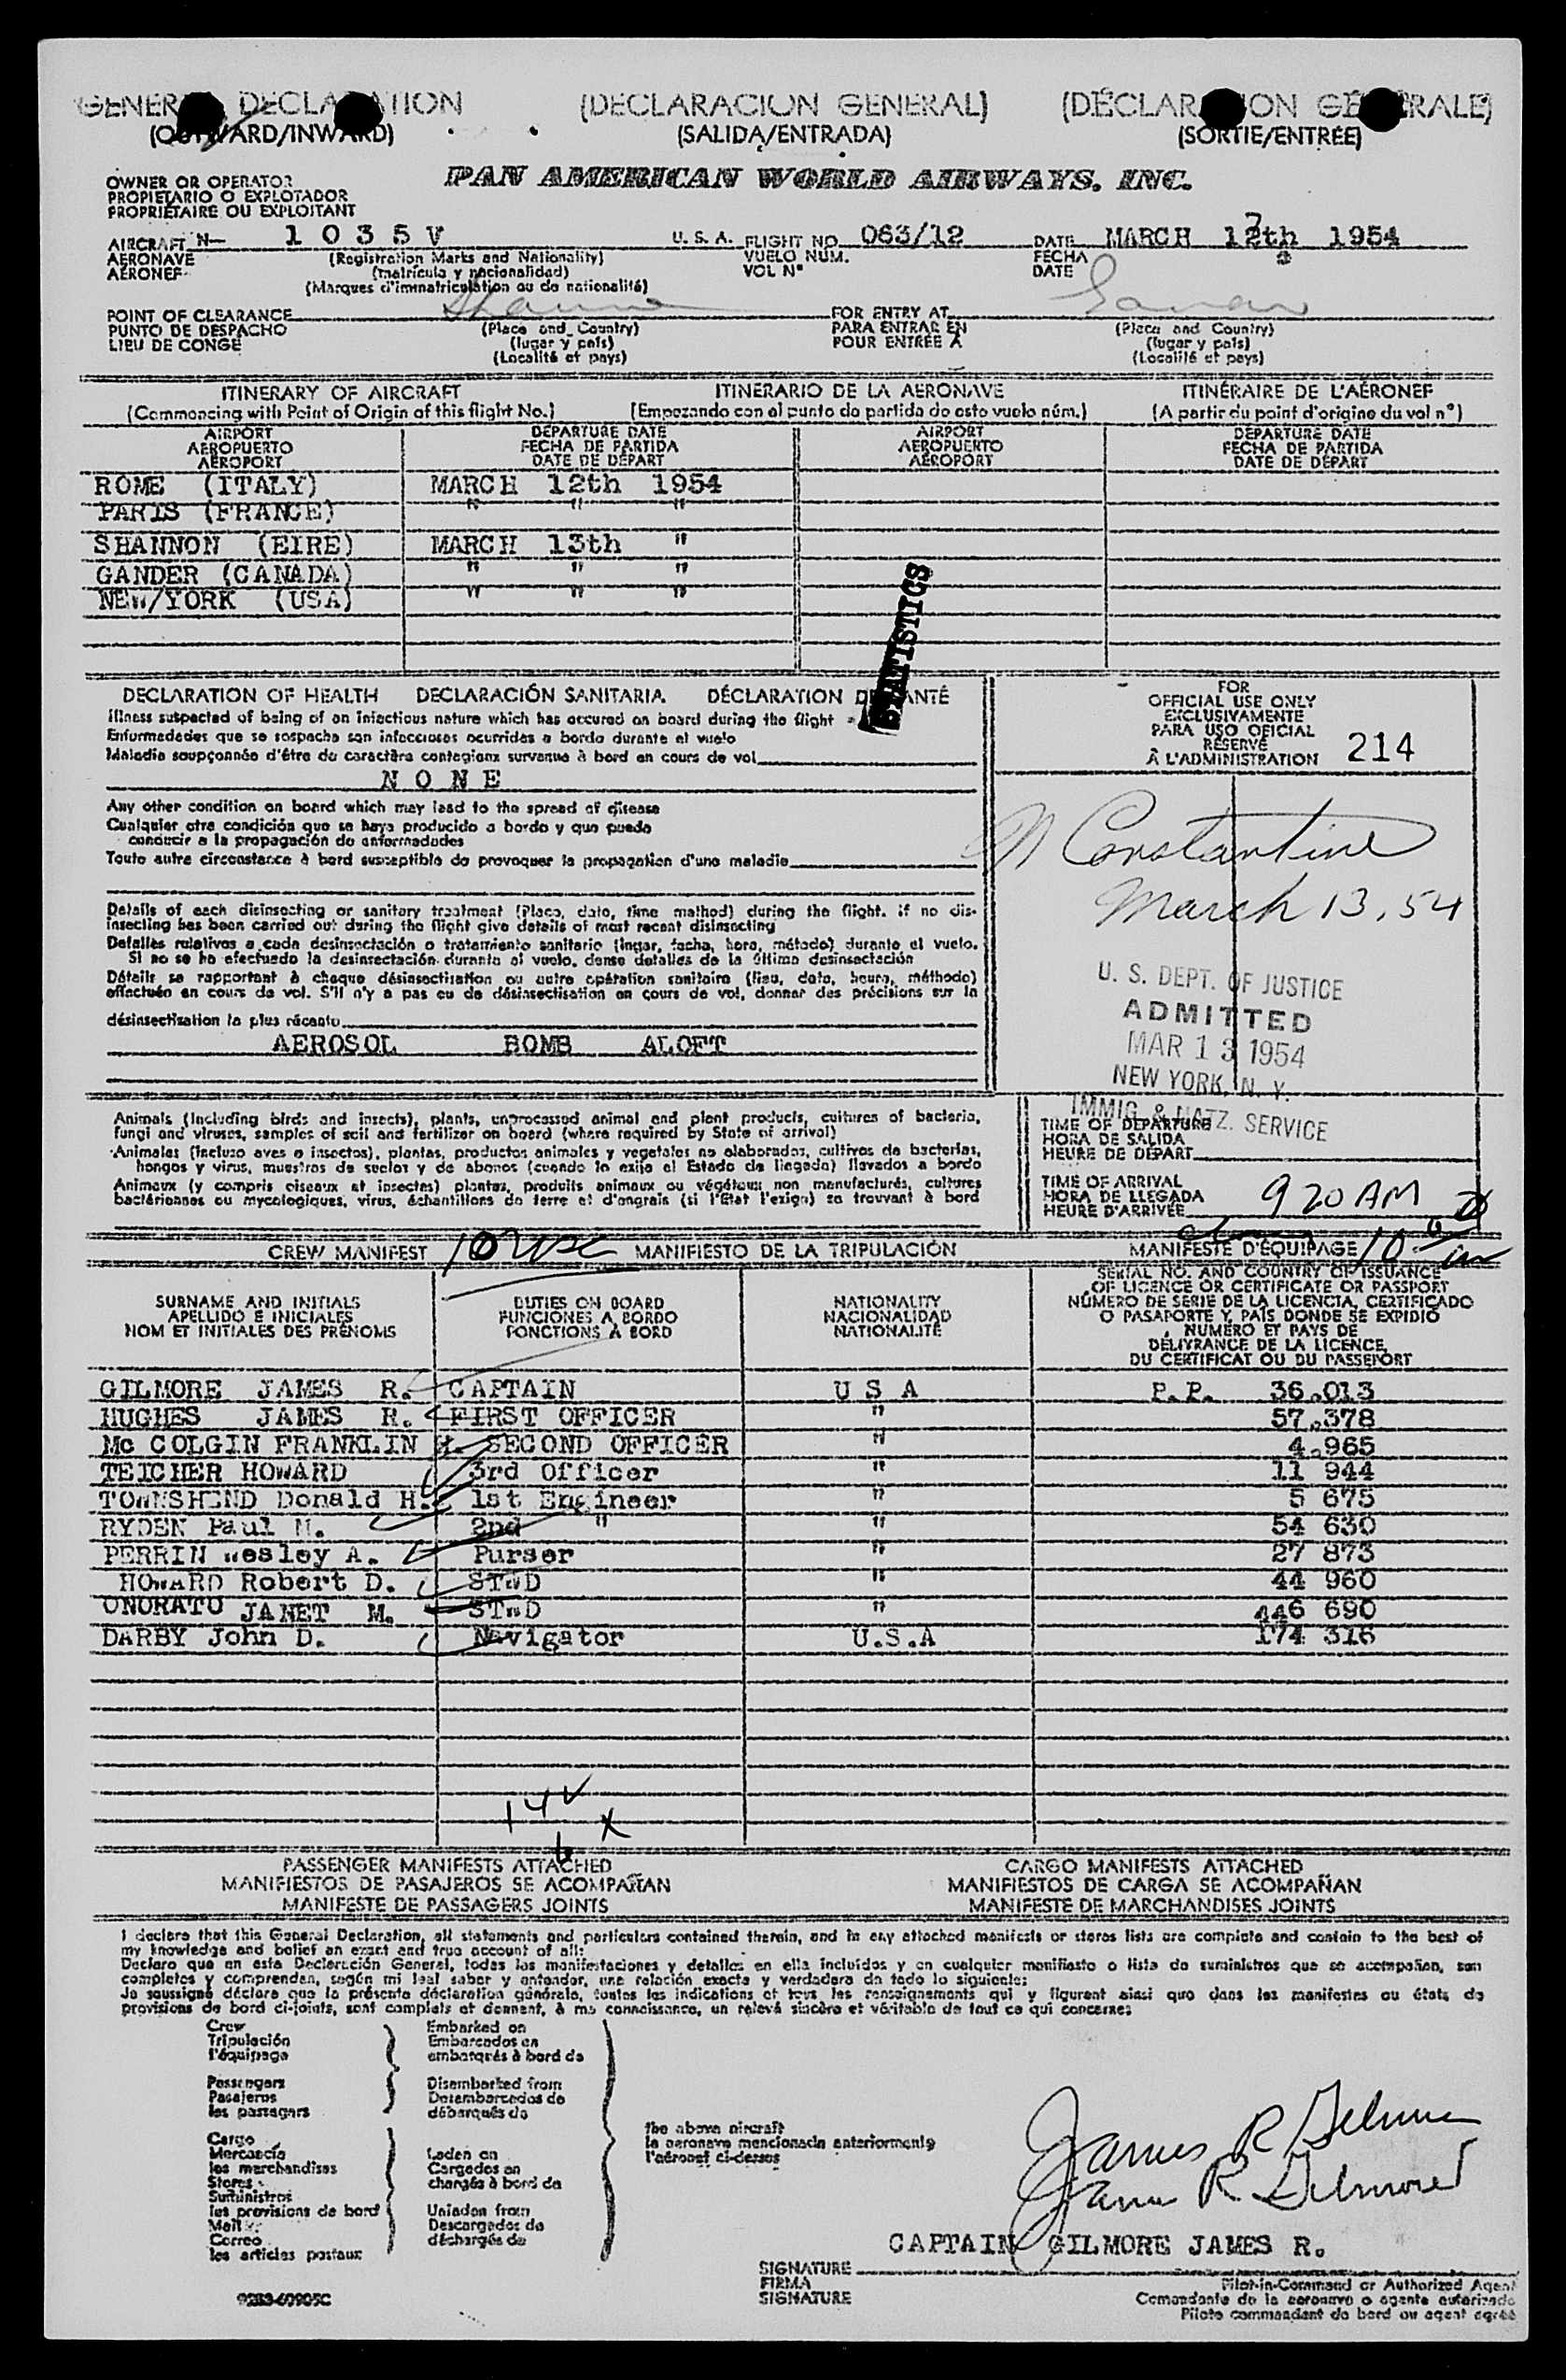 GENERAL DECLARATION (DECLARACION GENERAL) (DÉCLARATION GÉNÉRALE)
(OUTWARD/INWARD) (SALIDA/ENTRADA) (SORTIE/ENTRÉE)
PAN AMERICAN WORLD AIRWAYS, INC.
OWNER OR OPERATOR
PROPIETARIO O EXPLOTADOR
PROPRIÉTAIRE OU EXPLOITANT
AIRCRAFT N— 1 0 3 5 V U. S. A. FLIGHT NO. 063/12 DATE MARCH 13th 1954
AERONAVE (Registration Marks and Nationality) VUELO NUM. FECHA
AÉRONEF (matrícula y nacionalidad) VOL N° DATE
(Marques d'immatriculation ou de nationalité)
POINT OF CLEARANCE Shannon FOR ENTRY AT
PUNTO DE DESPACHO (Place and Country) PARA ENTRAR EN (Place and Country)
LIEU DE CONGÉ (lugar y país) POUR ENTRÉE A (lugar y país)
(Localité et pays) (Localité et pays)
ITINERARY OF AIRCRAFT ITINERARIO DE LA AERONAVE ITINÉRAIRE DE L'AÉRONEF
(Commencing with Point of Origin of this flight No.) (Empezando con el punto de partida de este vuelo núm.) (A partir du point d'origine du vol n°)
AIRPORT DEPARTURE DATE AIRPORT DEPARTURE DATE
AEROPUERTO FECHA DE PARTIDA AEROPUERTO FECHA DE PARTIDA
AÉROPORT DATE DE DÉPART AÉROPORT DATE DE DÉPART
ROME (ITALY) MARCH 12th 1954
PARIS (FRANCE) " " "
SHANNON (EIRE) MARCH 13th "
GANDER (CANADA) " " "
NEW/YORK (USA) " " "
STATISTICS
DECLARATION OF HEALTH DECLARACIÓN SANITARIA DÉCLARATION DE SANTÉ
Illness suspected of being of an infectious nature which has occured on board during the flight
Enfermedades que se sospecha son infecciosas ocurridas a bordo durante el vuelo
Maladie soupçonnée d'être de caractère contagieux survenue à bord en cours de vol
N O N E
Any other condition on board which may lead to the spread of disease
Cualquier otra condición que se haya producido a bordo y que pueda
conducir a la propagación de enfermedades
Toute autre circonstance à bord susceptible de provoquer la propagation d'une maladie
Details of each disinsecting or sanitary treatment (Place, date, time method) during the flight. if no dis-
insecting has been carried out during the flight give details of most recent disinsecting
Detalles relativos a cada desinsectación o tratamiento sanitario (lugar, fecha, hora, método) durante el vuelo.
Si no se ha efectuado la desinsectación durante el vuelo, dense detalles de la última desinsectación
Détails se rapportant à chaque désinsectisation ou autre opération sanitaire (lieu, date, heure, méthode)
effectuée en cours de vol. S'il n'y a pas eu de désinsectisation en cours de vol, donner des précisions sur la
désinsectisation la plus récente
AEROSOL BOMB ALOFT
FOR
OFFICIAL USE ONLY
EXCLUSIVAMENTE
PARA USO OFICIAL
RÉSERVÉ
À L'ADMINISTRATION 214
N Constantine
March 13, 54
U. S. DEPT. OF JUSTICE
ADMITTED
MAR 13 1954
NEW YORK, N. Y.
IMMIG. & NATZ. SERVICE
Animals (including birds and insects), plants, unprocessed animal and plant products, cultures of bacteria,
fungi and viruses, samples of soil and fertilizer on board (where required by State of arrival)
Animales (incluso aves o insectos), plantas, productos animales y vegetales no elaborados, cultivos de bacterias,
hongos y virus, muestras de suelos y de abonos (cuando lo exija el Estado de llegada) llevados a bordo
Animaux (y compris oiseaux et insectes) plantes, produits animaux ou végétaux non manufacturés, cultures
bactériennes ou mycologiques, virus, échantillons de terre et d'engrais (si l'État l'exige) se trouvant à bord
TIME OF DEPARTURE
HORA DE SALIDA
HEURE DE DÉPART
TIME OF ARRIVAL
HORA DE LLEGADA 9 20 AM
HEURE D'ARRIVÉE
CREW MANIFEST 10 USC MANIFIESTO DE LA TRIPULACIÓN MANIFESTE D'ÉQUIPAGE
SURNAME AND INITIALS DUTIES ON BOARD NATIONALITY SERIAL NO. AND COUNTRY OF ISSUANCE
APELLIDO E INICIALES FUNCIONES A BORDO NACIONALIDAD OF LICENCE OR CERTIFICATE OR PASSPORT
NOM ET INITIALES DES PRÉNOMS FONCTIONS À BORD NATIONALITÉ NÚMERO DE SERIE DE LA LICENCIA, CERTIFICADO
O PASAPORTE Y PAÍS DONDE SE EXPIDIÓ
NUMÉRO ET PAYS DE
DÉLIVRANCE DE LA LICENCE,
DU CERTIFICAT OU DU PASSEPORT
GILMORE JAMES R. CAPTAIN U S A P.P. 36.013
HUGHES JAMES R. FIRST OFFICER " 57.378
Mc COLGIN FRANKLIN SECOND OFFICER " 4.965
TEICHER HOWARD 3rd Officer " 11 944
TOWNSHEND Donald H. 1st Engineer " 5 675
RYDEN Paul M. 2nd " " 54 630
PERRIN Wesley A. Purser " 27 873
HOWARD Robert D. STWD " 44 960
ONORATO JANET M. STWD " 446 690
DARBY John D. Navigator U.S.A 174 316
14
6
PASSENGER MANIFESTS ATTACHED CARGO MANIFESTS ATTACHED
MANIFIESTOS DE PASAJEROS SE ACOMPAÑAN MANIFIESTOS DE CARGA SE ACOMPAÑAN
MANIFESTE DE PASSAGERS JOINTS MANIFESTE DE MARCHANDISES JOINTS
I declare that this General Declaration, all statements and particulars contained therein, and in any attached manifests or stores lists are complete and contain to the best of
my knowledge and belief an exact and true account of all:
Declaro que en esta Declaración General, todas las manifestaciones y detalles en ella incluidos y en cualquier manifiesto o lista de suministros que se acompañan, son
completos y comprenden, según mi leal saber y entender, una relación exacta y verdadera de todo lo siguiente:
Je soussigné déclare que la présente déclaration générale, toutes les indications et tous les renseignements qui y figurent ainsi que dans les manifestes ou états de
provisions de bord ci-joints, sont complets et donnent, à ma connaissance, un relevé sincère et véritable de tout ce qui concerne:
Crew Embarked on
Tripulación Embarcados en
l'équipage embarqués à bord de
Passengers Disembarked from
Pasajeros Desembarcados de
les passagers débarqués de
the above aircraft
la aeronave mencionada anteriormente
l'aéronef ci-dessus
Cargo
Mercancía Laden on
les marchandises Cargados en
Stores chargés à bord de
Suministros
les provisions de bord Unladen from
Mail Descargados de
Correo déchargés de
les articles postaux
James R Gilmore
James R Gilmore
CAPTAIN GILMORE JAMES R.
SIGNATURE
FIRMA
SIGNATURE
Pilot-in-Command or Authorized Agent
Comandante de la aeronave o agente autorizado
Pilote commandant de bord ou agent agréé